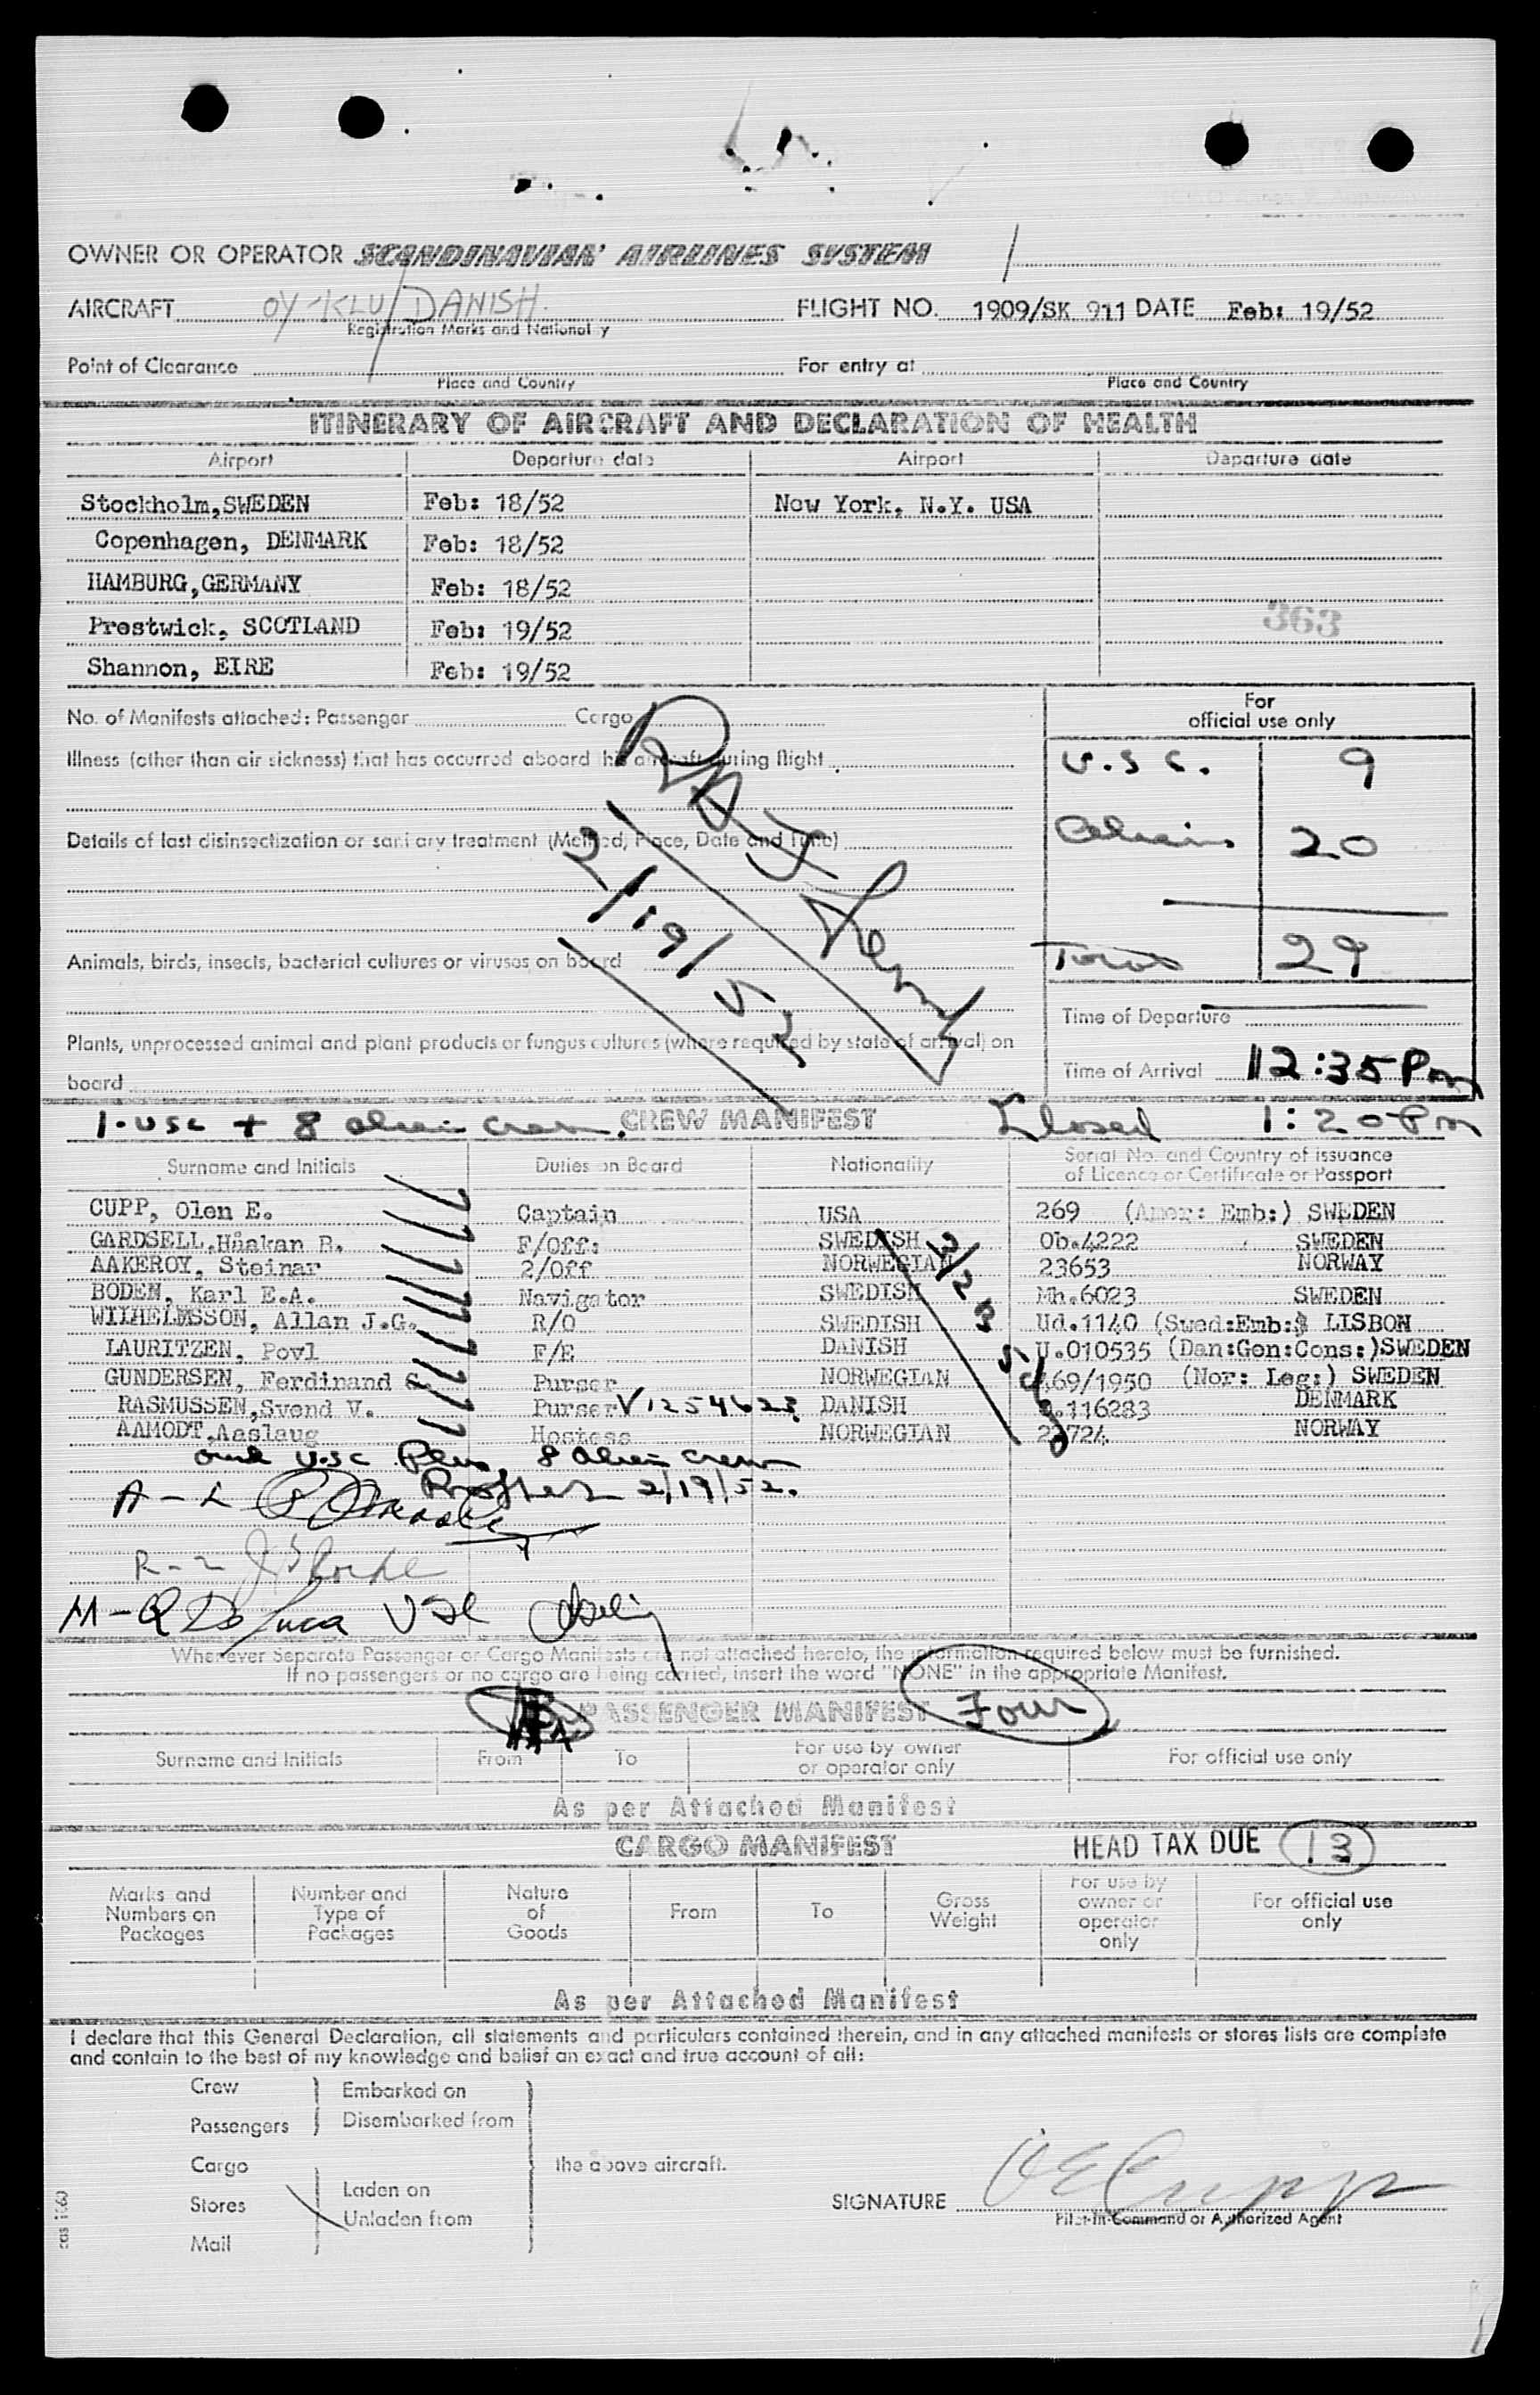 OWNER OR OPERATOR SCANDINAVIAN AIRLINES SYSTEM
AIRCRAFT OY-KLU/DANISH. FLIGHT NO. 1909/SK 911 DATE Feb: 19/52
Registration Marks and Nationality
Point of Clearance For entry at
Place and Country Place and Country
ITINERARY OF AIRCRAFT AND DECLARATION OF HEALTH
Airport Departure date Airport Departure date
Stockholm, SWEDEN Feb: 18/52 New York, N.Y. USA
Copenhagen, DENMARK Feb: 18/52
HAMBURG, GERMANY Feb: 18/52
Prestwick, SCOTLAND Feb: 19/52 363
Shannon, EIRE Feb: 19/52
No. of Manifests attached: Passenger Cargo
For official use only
Illness (other than air sickness) that has occurred aboard this aircraft during flight
U.S C. 9
Details of last disinsectization or sanitary treatment (Method, Place, Date and Time)
Aliens 20
2/19/52
Animals, birds, insects, bacterial cultures or viruses on board
Total 29
Time of Departure
Plants, unprocessed animal and plant products or fungus cultures (where required by state of arrival) on
board
Time of Arrival 12:35 Pm
1 - usc + 8 alien crew. CREW MANIFEST Closed 1:20 Pm
Surname and Initials Duties on Board Nationality Serial No. and Country of issuance
of Licence or Certificate or Passport
CUPP, Olen E. Captain USA 269 (Amer: Emb:) SWEDEN
GARDSELL, Håakan B. F/Off: SWEDISH Ob.4222 SWEDEN
AAKEROY, Steinar 2/Off NORWEGIAN 23653 NORWAY
BODEN, Karl E.A. Navigator SWEDISH Mh.6023 SWEDEN
WILHELMSSON, Allan J.G. R/O SWEDISH Ud.1140 (Swed:Emb: LISBON
LAURITZEN, Povl F/E DANISH U.010535 (Dan:Gen:Cons:) SWEDEN
GUNDERSEN, Ferdinand Purser NORWEGIAN 69/1950 (Nor: Leg:) SWEDEN
RASMUSSEN, Svend V. Purser V1254623 DANISH 116283 DENMARK
AAMODT, Aaslaug Hostess NORWEGIAN NORWAY
one usc Plus 8 alien crew
A - L 2/19/52.
R - 2
M - R De Luca
Whenever Separate Passenger or Cargo Manifests are not attached hereto, the information required below must be furnished.
If no passengers or no cargo are being carried, insert the word "NONE" in the appropriate Manifest.
PASSENGER MANIFEST Four
Surname and Initials From To For use by owner or operator only For official use only
As per Attached Manifest
CARGO MANIFEST HEAD TAX DUE 13
Marks and Numbers on Packages Number and Type of Packages Nature of Goods From To Gross Weight For use by owner or operator only For official use only
As per Attached Manifest
I declare that this General Declaration, all statements and particulars contained therein, and in any attached manifests or stores lists are complete
and contain to the best of my knowledge and belief an exact and true account of all:
Crew Embarked on
Passengers Disembarked from
Cargo the above aircraft.
Stores Laden on
Unladen from
Mail
SIGNATURE O E Cupp
Pilot-in-Command or Authorized Agent